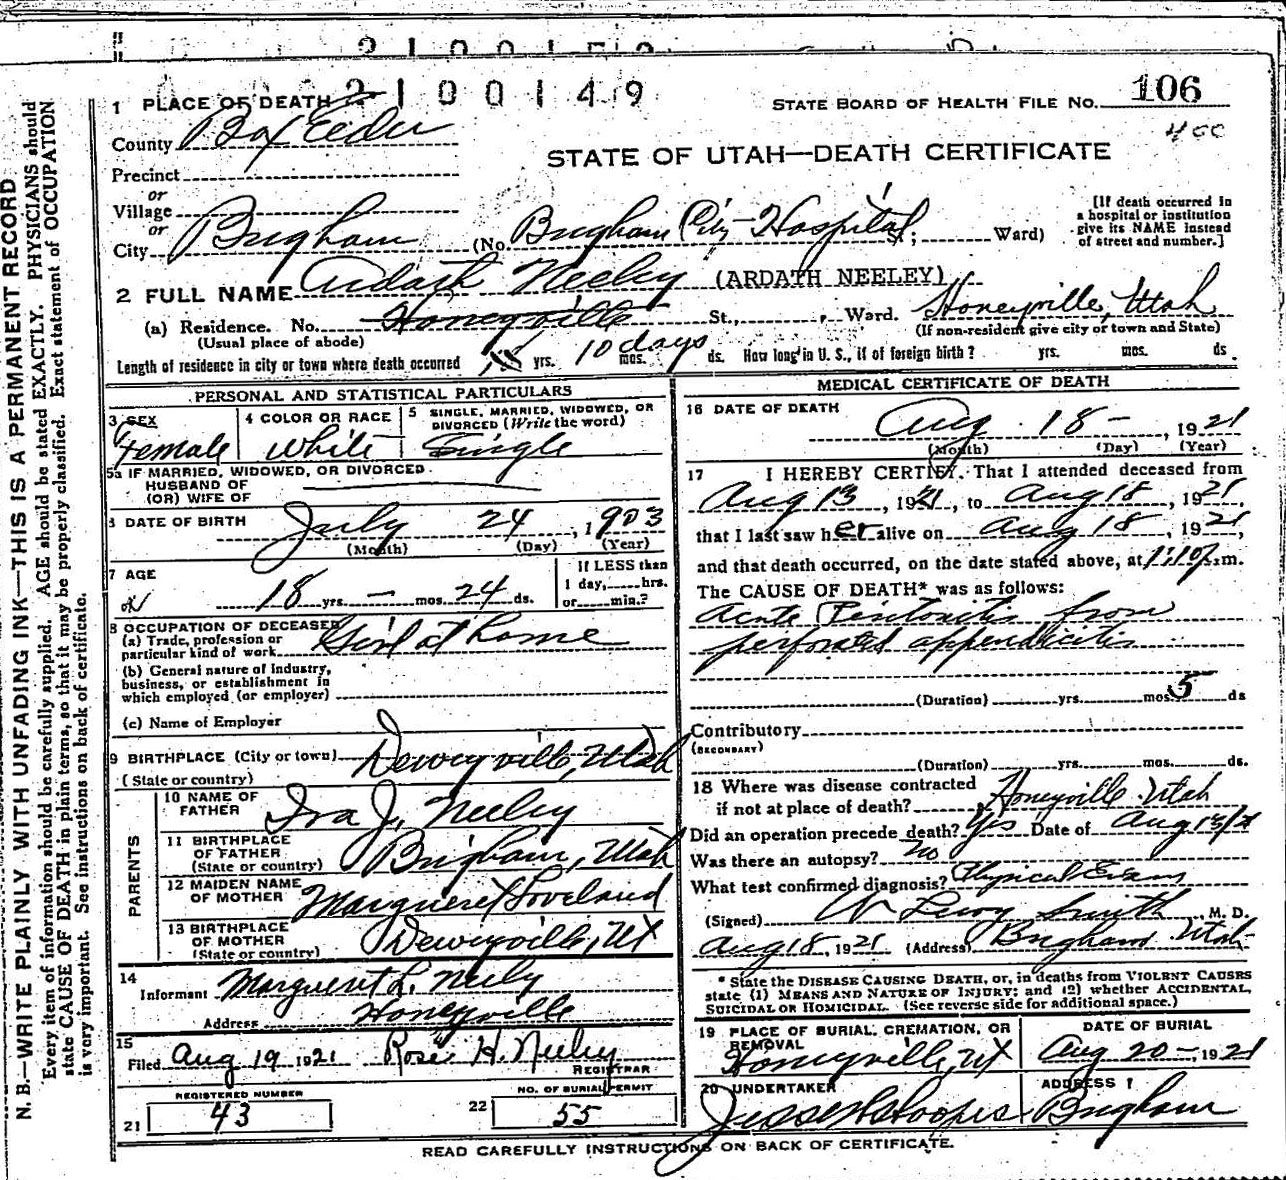 2100149
1 PLACE OF DEATH
STATE BOARD OF HEALTH FILE NO. 106
400
County Box Elder
STATE OF UTAH—DEATH CERTIFICATE
Precinct
or
Village
or
City Brigham (No. Brigham City Hospital; Ward)
[If death occurred in
a hospital or institution
give its NAME instead
of street and number.]
2 FULL NAME Ardath Neeley (ARDATH NEELEY)
(a) Residence. No. Honeyville St., Ward. Honeyville, Utah
(Usual place of abode) (If non-resident give city or town and State)
Length of residence in city or town where death occurred yrs. 10 days mos. ds. How long in U. S., if of foreign birth? yrs. mos. ds.
PERSONAL AND STATISTICAL PARTICULARS
3 SEX Female
4 COLOR OR RACE White
5 SINGLE, MARRIED, WIDOWED, OR
DIVORCED (Write the word)
Single
5a IF MARRIED, WIDOWED, OR DIVORCED
HUSBAND OF
(OR) WIFE OF
6 DATE OF BIRTH July 24, 1903
(Month) (Day) (Year)
7 AGE
18 yrs. — mos. 24 ds.
If LESS than
1 day, hrs.
or min.?
8 OCCUPATION OF DECEASED
(a) Trade, profession or
particular kind of work Girl at home
(b) General nature of industry,
business, or establishment in
which employed (or employer)
(c) Name of Employer
9 BIRTHPLACE (City or town) Deweyville, Utah
(State or country)
PARENTS
10 NAME OF
FATHER Ira J. Neeley
11 BIRTHPLACE
OF FATHER Brigham, Utah
(State or country)
12 MAIDEN NAME
OF MOTHER Margueret Loveland
13 BIRTHPLACE
OF MOTHER Deweyville, Ut
(State or country)
14
Informant Margueret L. Neely
Address Honeyville
15
Filed Aug 19 1921 Rose H. Neeley
REGISTRAR
REGISTERED NUMBER
21 43
NO. OF BURIAL PERMIT
22 55
MEDICAL CERTIFICATE OF DEATH
16 DATE OF DEATH
Aug 18 —, 1921
(Month) (Day) (Year)
17 I HEREBY CERTIFY. That I attended deceased from
Aug 13, 1921, to Aug 18, 1921
that I last saw her alive on Aug 18, 1921,
and that death occurred, on the date stated above, at 1:10 P.m.
The CAUSE OF DEATH* was as follows:
Acute Peritonitis from
perforated appendicitis
(Duration) yrs. mos. 5 ds
Contributory
(SECONDARY)
(Duration) yrs. mos. ds.
18 Where was disease contracted
if not at place of death? Honeyville Utah
Did an operation precede death? Yes Date of Aug 13/21
Was there an autopsy? no
What test confirmed diagnosis? Physical Exam
(Signed) W Leroy Smith, M. D.
Aug 18, 1921 (Address) Brigham Utah
* State the DISEASE CAUSING DEATH, or, in deaths from VIOLENT CAUSES
state (1) MEANS AND NATURE OF INJURY; and (2) whether ACCIDENTAL,
SUICIDAL OR HOMICIDAL. (See reverse side for additional space.)
19 PLACE OF BURIAL, CREMATION, OR
REMOVAL
Honeyville, Ut
DATE OF BURIAL
Aug 20—, 1921
20 UNDERTAKER
ADDRESS
Brigham
READ CAREFULLY INSTRUCTIONS ON BACK OF CERTIFICATE.
N. B.—WRITE PLAINLY WITH UNFADING INK—THIS IS A PERMANENT RECORD
Every item of information should be carefully supplied. AGE should be stated EXACTLY. PHYSICIANS should
state CAUSE OF DEATH in plain terms, so that it may be properly classified. Exact statement of OCCUPATION
is very important. See instructions on back of certificate.